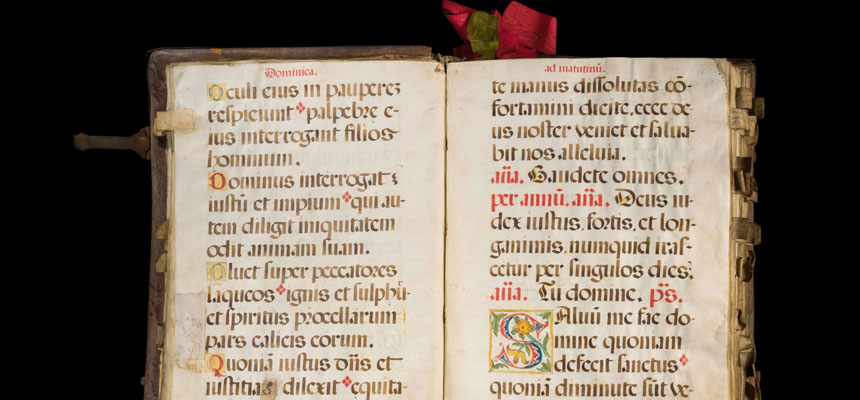 Dominica.
Oculi eius in pauperez
respiciunt palpebre e-
ius interrogant filios
hominum.
Dominus interrogat
iustũ et impium qui au-
tem diligit iniquitatem
odit animam suam.
Pluet super peccatores
laqueos ignis et sulphũr
et spiritus procellarum
pars calicis eorum.
Quoniã iustus dñs et
iustitias dilexit equita-
ad matutinũ.
te manus dissolutas cõ-
fortamini dicite, ecce de-
us noster veniet et salua-
bit nos alleluia.
añа. Gaudete omnes.
per annũ. añа. Deus iu-
dex iustus, fortis, et lon-
ganimis, numquid iras-
cetur per singulos dies?
añа. Tu domine. ps.
Saluũ me fac do-
mine quoniam
defecit sanctus
quoniã diminute sũt ve-